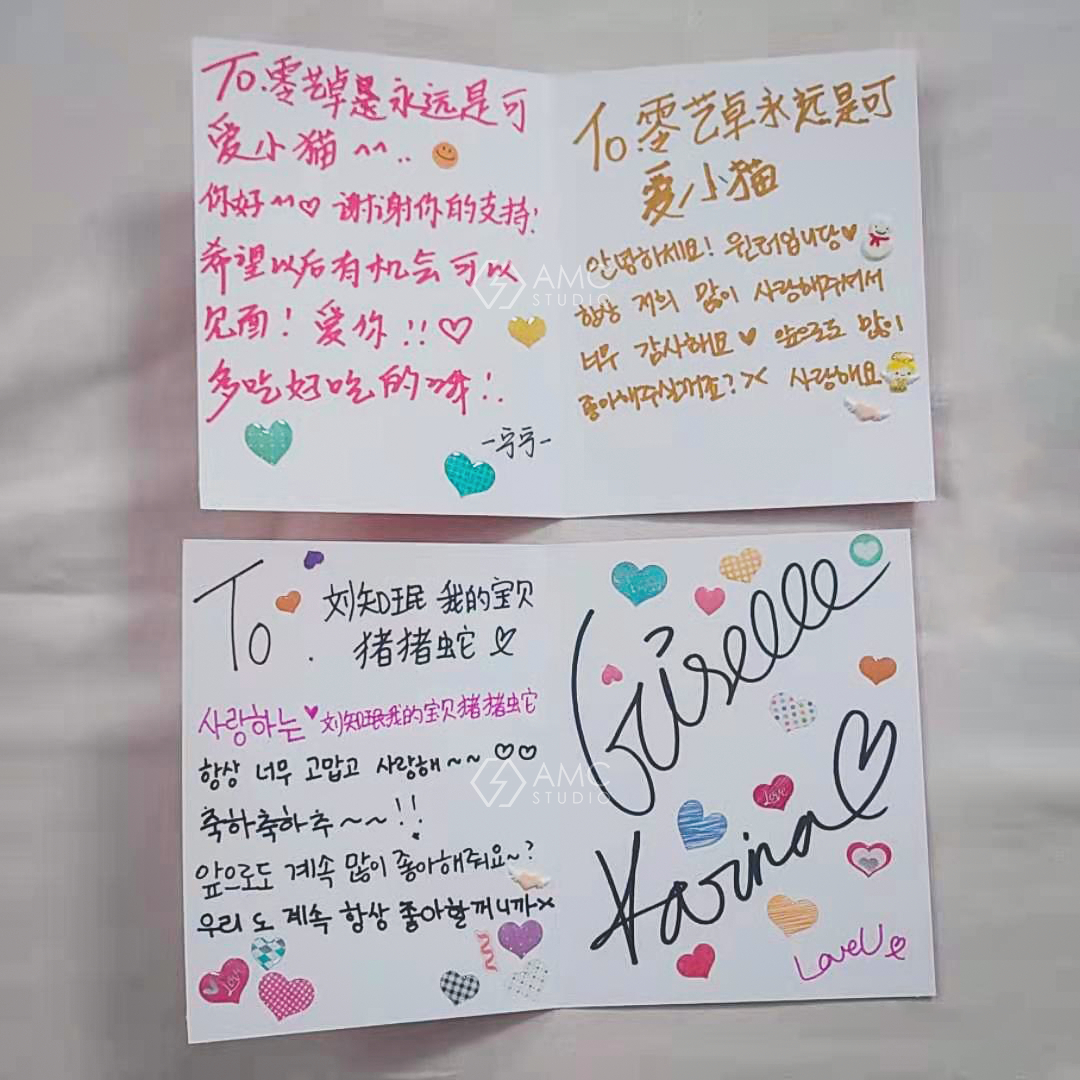 To.零艺卓是永远是可
爱小猫 ^^..
你好~~♡ 谢谢你的支持!
希望以后有机会可以
见面! 爱你!!♡
多吃好吃的哦!!
-宁宁-
To 零艺卓永远是可
爱小猫
안녕하세요! 윈터입니당♥
항상 저희 많이 사랑해주셔서
너무 감사해요♥ 앞으로도 많이
좋아해주실거죠?>< 사랑해요
To. 刘知珉 我的宝贝
猪猪蛇♡
사랑하는♥刘知珉我的宝贝猪猪蛇
항상 너무 고맙고 사랑해~~♡♡
축하축하추~~!!
앞으로도 계속 많이 좋아해줘요~?
우리도 계속 항상 좋아할꺼니까><
Giselle
Karina♡
Love U
Love
Love
AMC
STUDIO
AMC
STUDIO